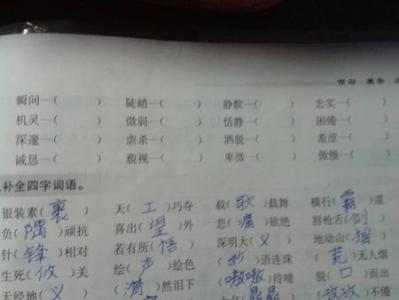 瞬间—( ) 陡峭—( ) 静默—( ) 忠实—( )
机灵—( ) 微弱—( ) 恬静—( ) 困倦—( )
深邃—( ) 虐杀—( ) 洒脱—( ) 羞涩—( )
诚恳—( ) 藐视—( ) 卑微—( ) 傲慢—( )
补全四字词语。
银装素(裹) 天(工)巧夺 载(歌)载舞 横行(霸)道
负(隅)顽抗 喜出(望)外 悲(痛)欲绝 唇枪舌(剑)
针(锋)相对 若有所(悟) 深明大(义) 地动山(摇)
生死(攸)关 绘(声)绘色 (妙)语连珠 (荒)无人烟
天经地(义) (潸)然泪下 (嗷嗷)待哺 脱(口)而出